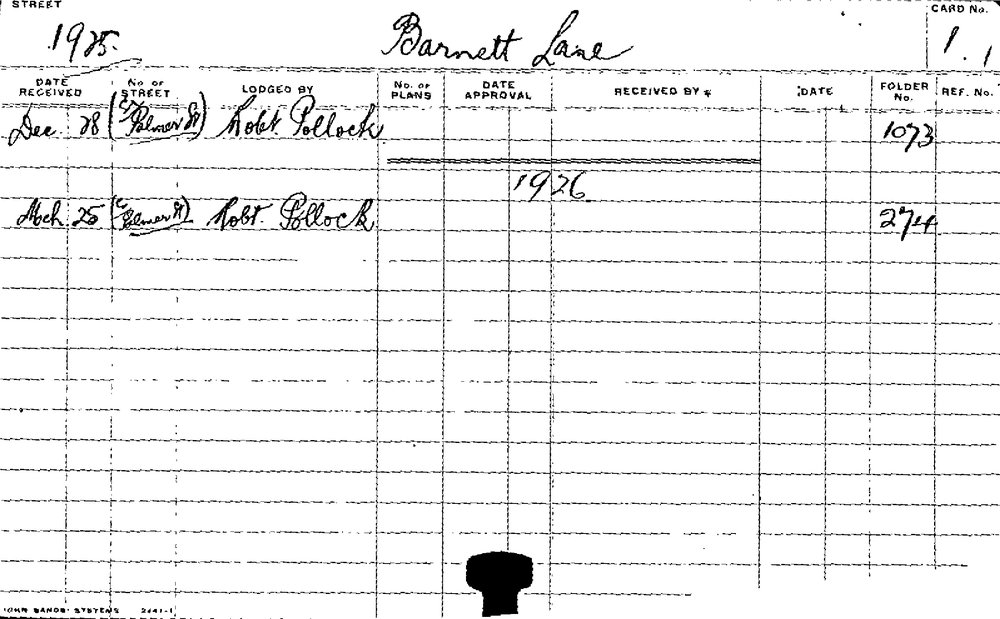 STREET
CARD No.
1925. Barnett Lane 1.1
DATE RECEIVED No. OF STREET LODGED BY No. OF PLANS DATE APPROVAL RECEIVED BY DATE FOLDER No. REF. No.
Dec. 28 (C/r Palmer St) Robt. Pollock 1073
1926
Mch. 25 (C/r Palmer St) Robt. Pollock 274
JOHN SANDS' SYSTEMS 2441-1